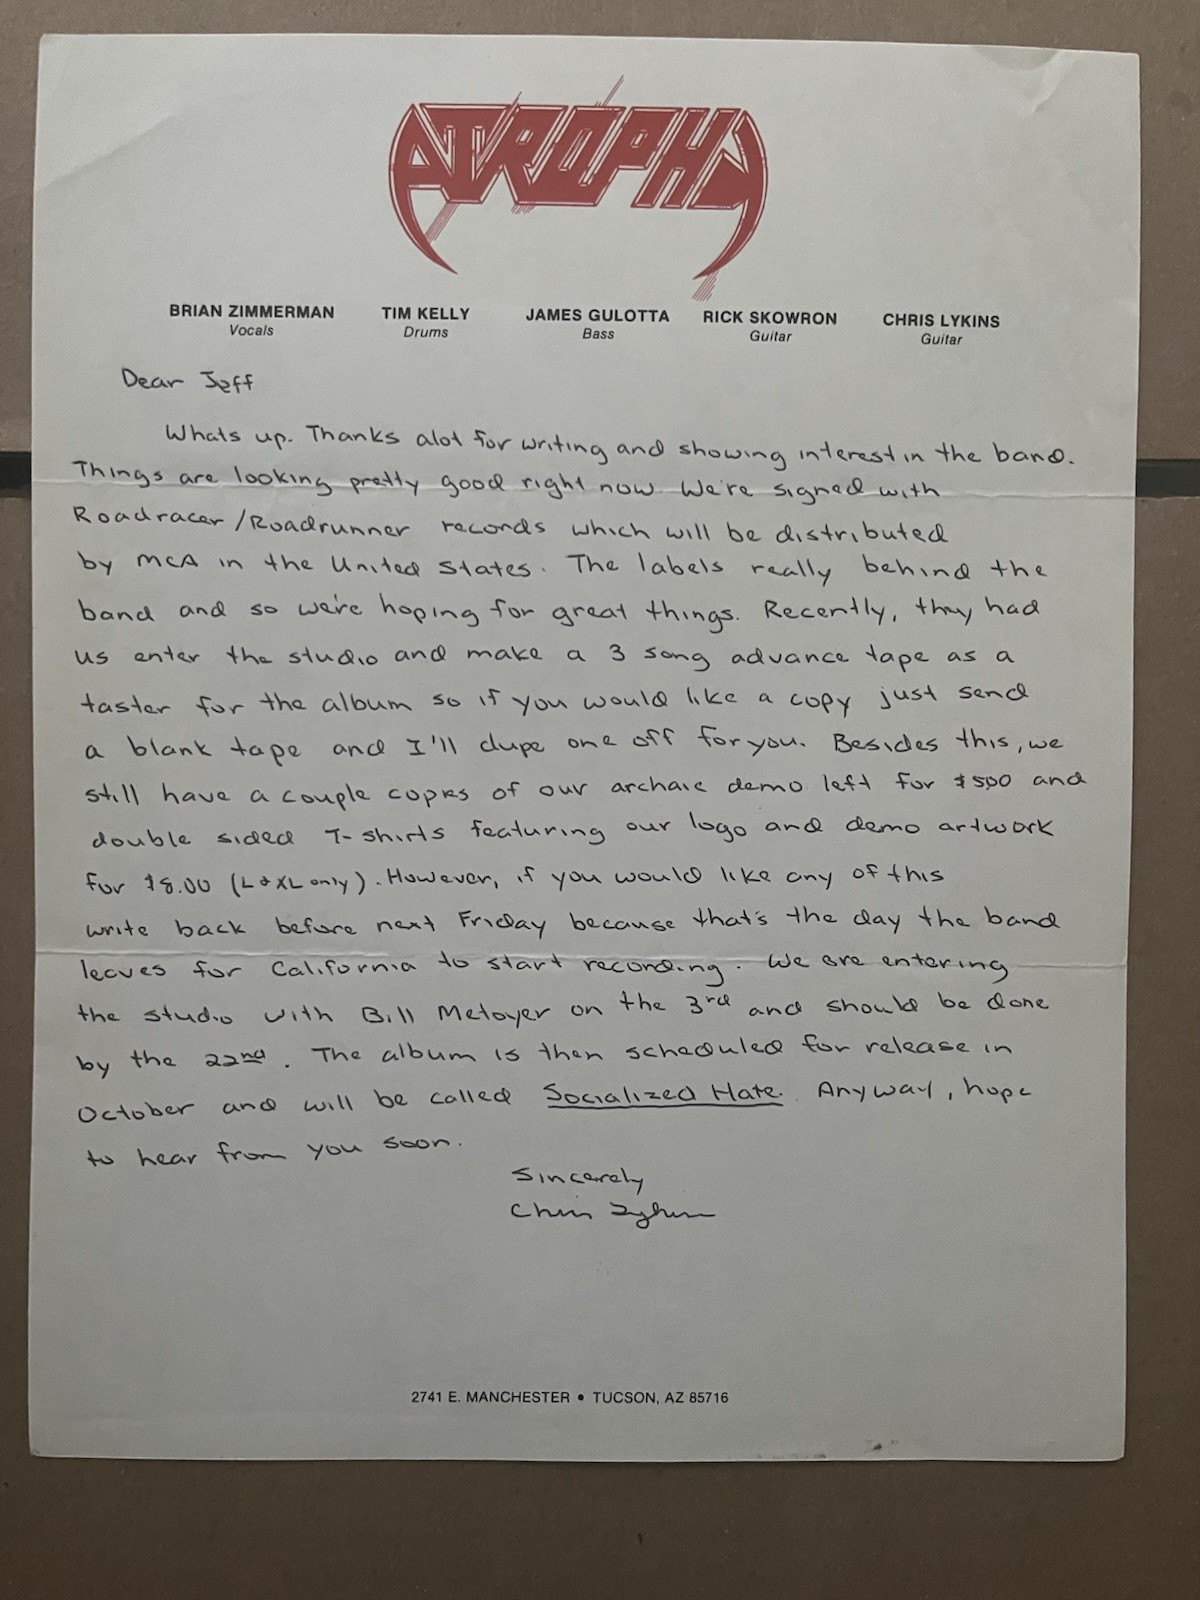 ATROPHY
BRIAN ZIMMERMAN TIM KELLY JAMES GULOTTA RICK SKOWRON CHRIS LYKINS
Vocals Drums Bass Guitar Guitar
Dear Jeff
Whats up. Thanks alot for writing and showing interest in the band.
Things are looking pretty good right now. We're signed with
Roadracer/Roadrunner records which will be distributed
by MCA in the United States. The labels really behind the
band and so we're hoping for great things. Recently, they had
us enter the studio and make a 3 song advance tape as a
taster for the album so if you would like a copy just send
a blank tape and I'll dupe one off for you. Besides this, we
still have a couple copies of our archaic demo left for $500 and
double sided T-shirts featuring our logo and demo artwork
for $8.00 (L & XL only). However, if you would like any of this
write back before next Friday because that's the day the band
leaves for California to start recording. We are entering
the studio with Bill Metoyer on the 3rd and should be done
by the 22nd. The album is then scheduled for release in
October and will be called Socialized Hate. Anyway, hope
to hear from you soon.
Sincerely
Chris Lykins
2741 E. MANCHESTER • TUCSON, AZ 85716